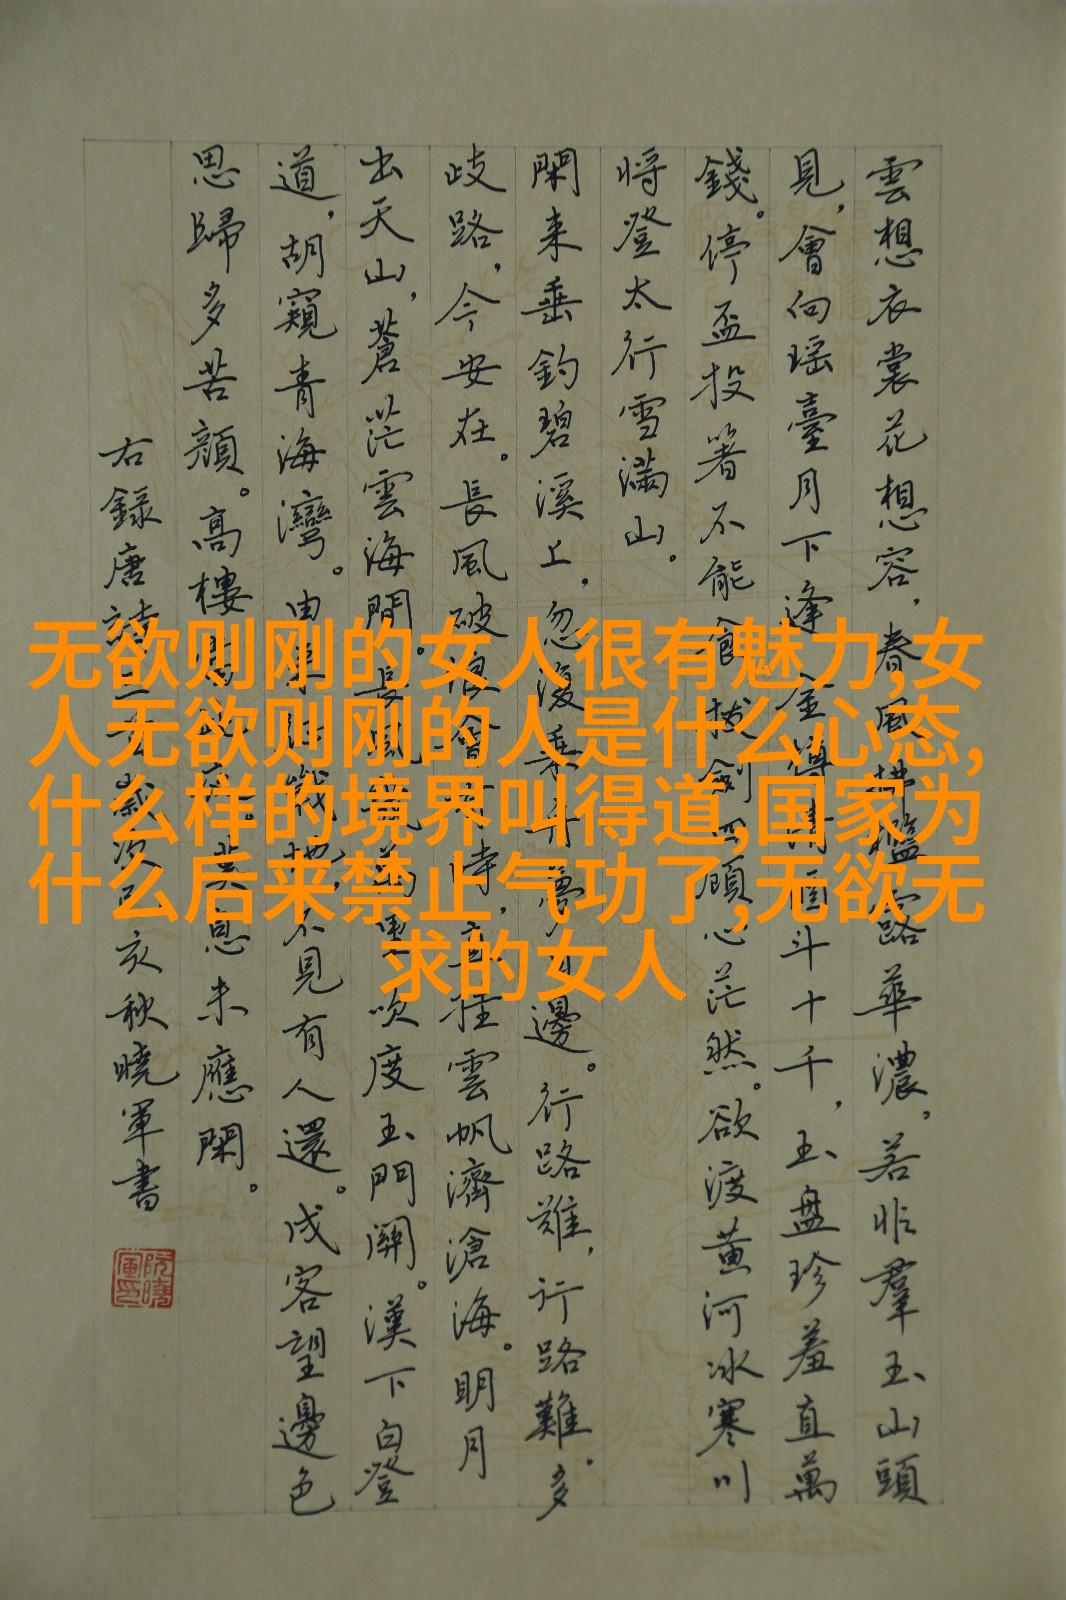 无欲则刚的女人很有魅力,女
人无欲则刚的人是什么心态,
什么样的境界叫得道,国家为
什么后来禁止气功了,无欲无
求的女人
雲想衣裳花想容,春風拂檻露華濃,若非羣玉山頭
見,會向瑶臺月下逢金樽清酒斗十千,玉盤珍羞直萬
錢。停盃投箸不能食拔劍四顧心茫然。欲渡黄河冰寒川
將登太行雪滿山。
閑来垂釣碧溪上,忽復乘舟夢日邊。行路難,行路難。多
歧路,今安在。長風破浪會有時,直挂雲帆濟滄海。明月
出天山,蒼茫雲海間。長風幾萬里吹度玉門關。漢下白登
道,胡窺青海灣。由来征戰地,不見有人還。戍客望邊色
思歸多苦顔。高樓當此夜,歎息未應閑。
右錄唐詩首歲次己亥秋曉軍書
阮曉軍印